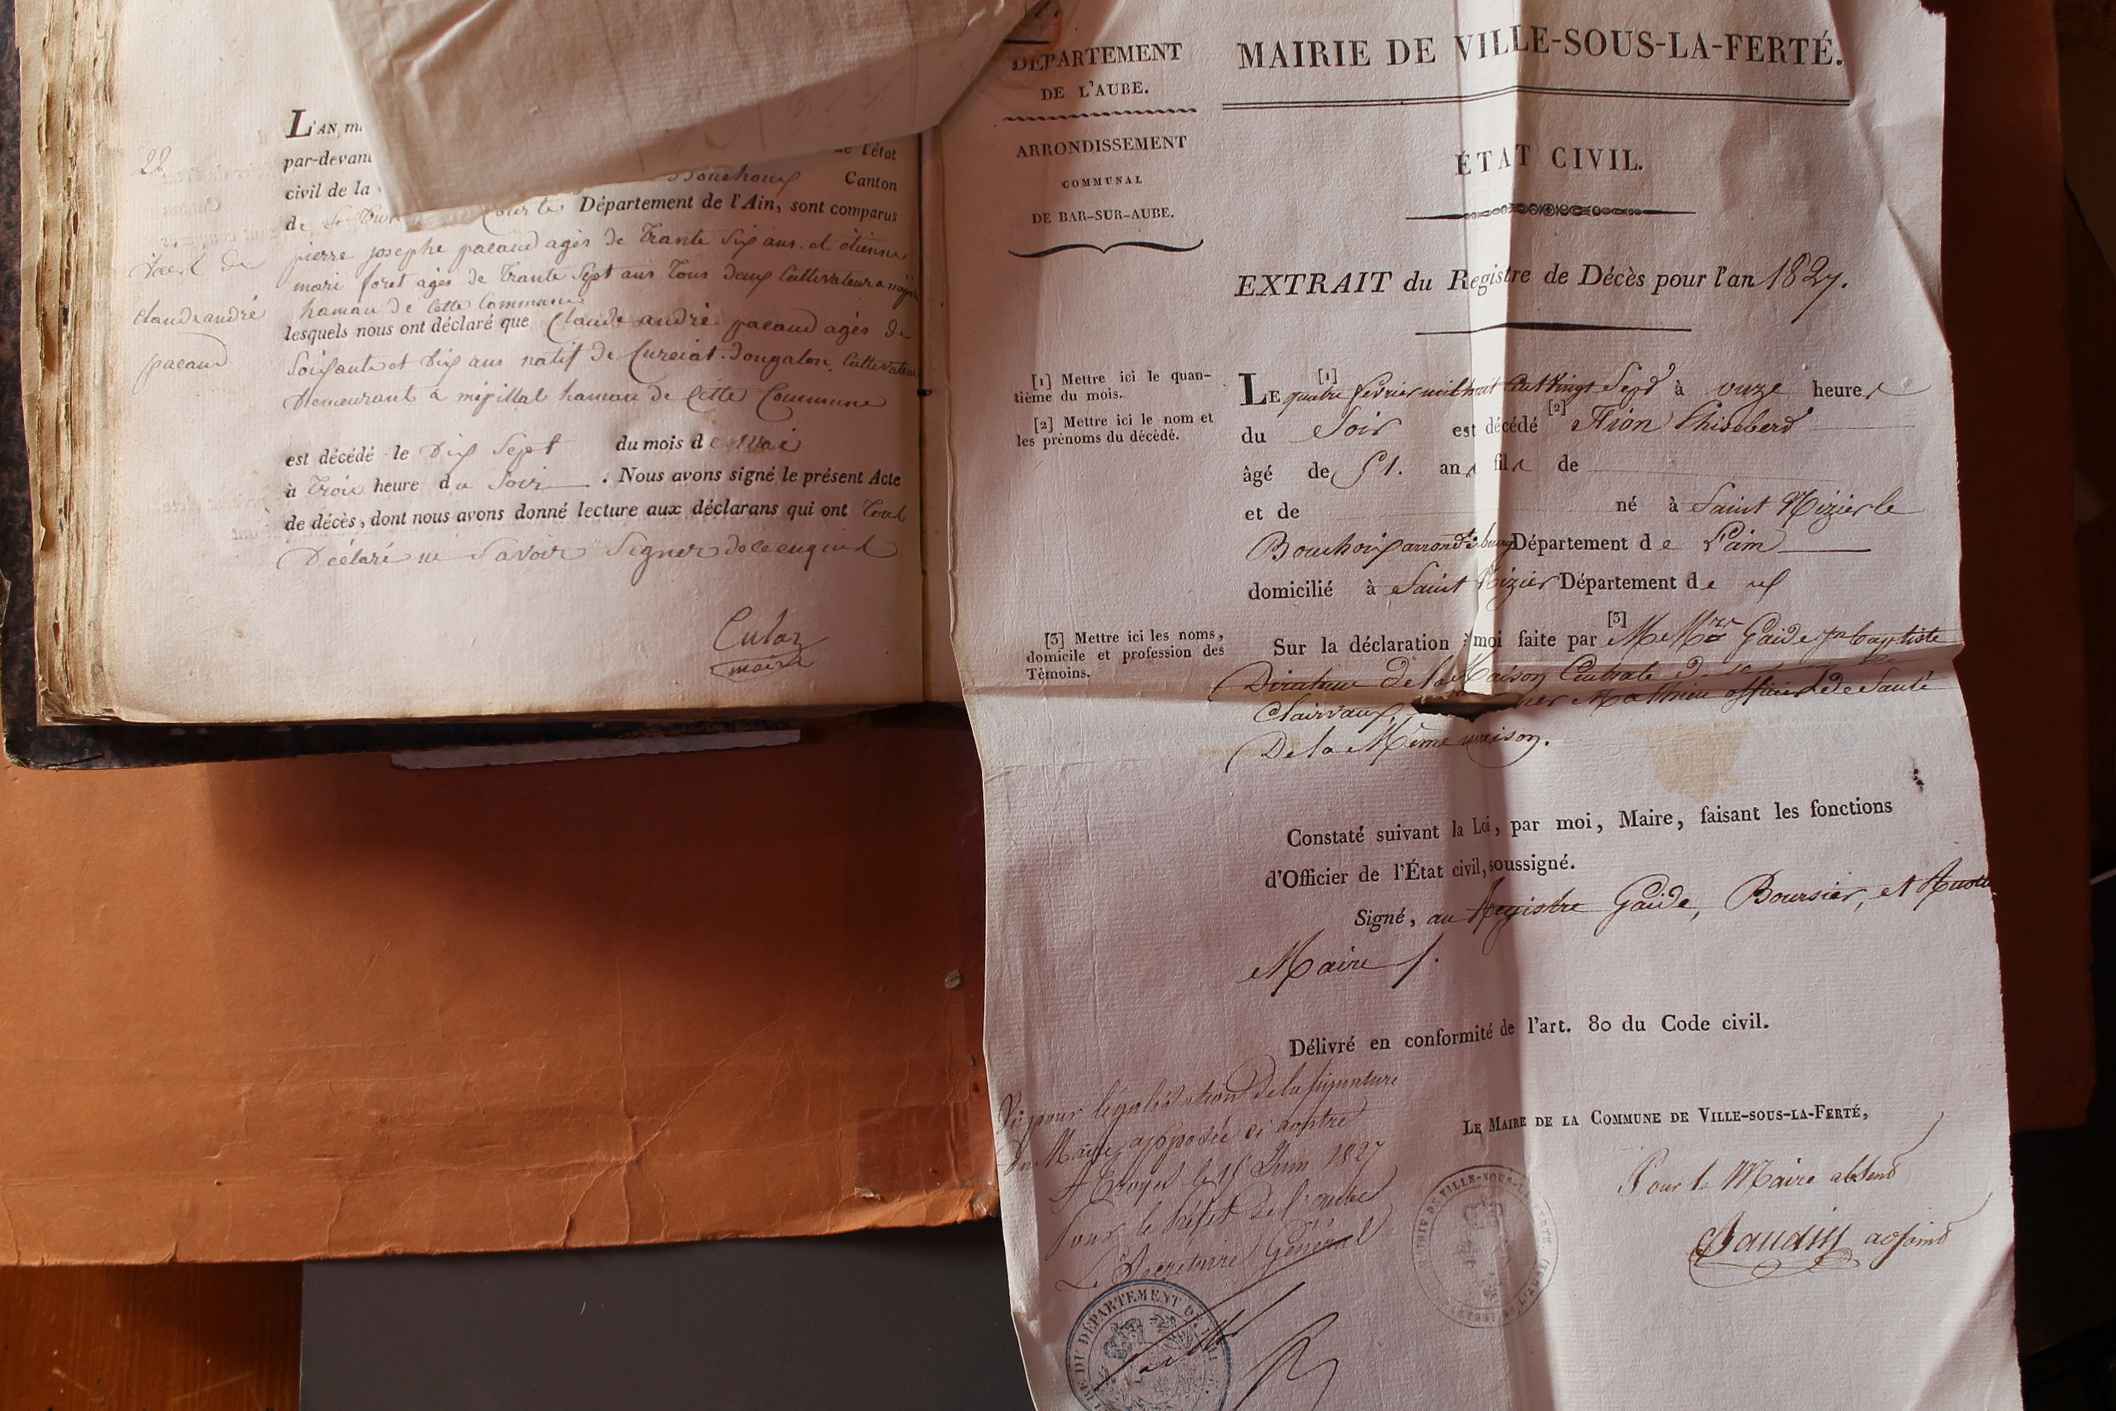 22
décès de
claude andré
pacaud
L'AN
par-devant
de l'état
civil de la
Bouchoux Canton
de St Département de l'Ain, sont comparus
pierre josephe pacaud agés de trante six ans et étienne
mari foret agés de trante sept ans tous deux Cultivateur a
hamau de cette Commune
lesquels nous ont déclaré que Claude andré pacaud agés de
Soixante et dix ans natif de Curciat-dongalon, Cultivateur
demeurant à mépillat hamau de cette Commune
est décédé le dix sept du mois de Mai
à trois heure du Soir . Nous avons signé le présent Acte
de décès, dont nous avons donné lecture aux déclarans qui ont tout
Déclaré ne Savoir Signer de ce enquis
maire
DÉPARTEMENT
DE L'AUBE.
ARRONDISSEMENT
COMMUNAL
DE BAR-SUR-AUBE.
MAIRIE DE VILLE-SOUS-LA-FERTÉ.
ÉTAT CIVIL.
EXTRAIT du Registre de Décès pour l'an 1827.
[1] Mettre ici le quan-
tième du mois.
[2] Mettre ici le nom et
les prénoms du décédé.
[3] Mettre ici les noms,
domicile et profession des
Témoins.
[1]
LE quatre février mil huit cent vingt Sept à onze heures
du Soir est décédé [2]
âgé de 51. ans fils de
et de né à Saint Nizier le
Bouchoux Département de l'ain
domicilié à Saint Nizier Département de
Sur la déclaration à moi faite par [3] MeMrs Gaide jn baptiste
Directeur de la Maison Centrale de
Clairvaux, officier de Santé
De la Même maison.
Constaté suivant la Loi, par moi, Maire, faisant les fonctions
d'Officier de l'État civil, soussigné.
Signé, au Registre Gaide, Boursier, et
Maire /.
Délivré en conformité de l'art. 80 du Code civil.
Vu pour légalisation de la signature
du Maire, apposée ci contre
A Troyes le 15 Juin 1827
Pour le Préfet de l'aube
Le Secrétaire Général
LE MAIRE DE LA COMMUNE DE VILLE-SOUS-LA-FERTÉ,
Pour le Maire absend
Baudin adjoind
DU DÉPARTEMENT DE